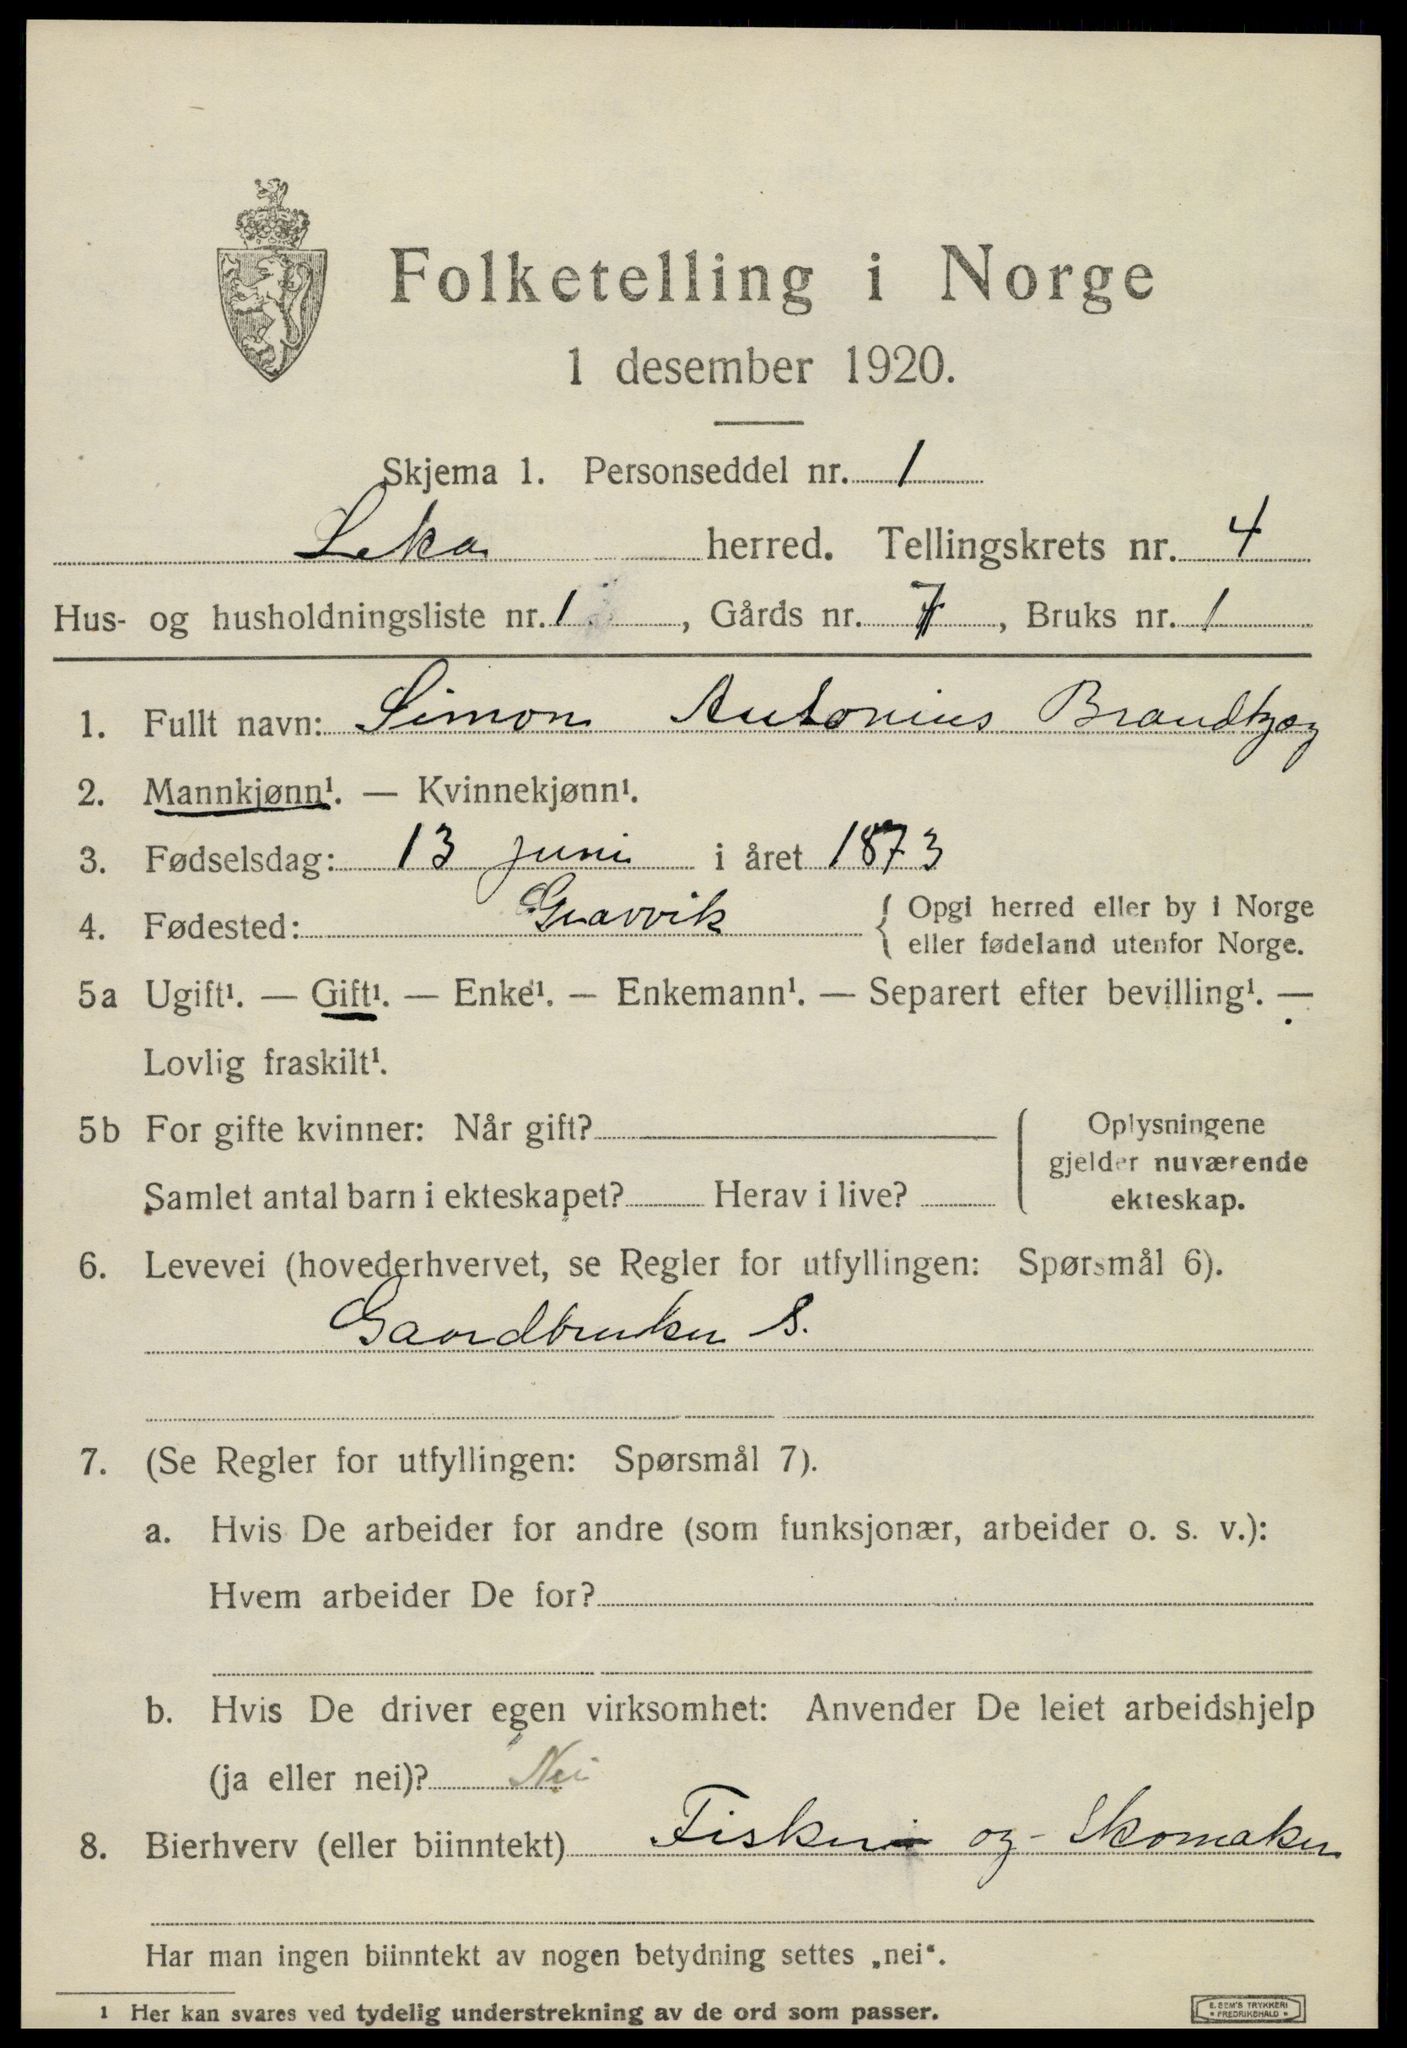 Folketelling i Norge
1 desember 1920.
Skjema 1. Personseddel nr. 1
Leka herred. Tellingskrets nr. 4
Hus- og husholdningsliste nr. 1, Gårds nr. 7, Bruks nr. 1
1. Fullt navn: Simon Antonius
2. Mannkjønn¹. — Kvinnekjønn¹.
3. Fødselsdag: 13 juni i året 1873
4. Fødested: Gravvik { Opgi herred eller by i Norge
eller fødeland utenfor Norge.
5a Ugift¹. — Gift¹. — Enke¹. — Enkemann¹. — Separert efter bevilling¹. —
Lovlig fraskilt¹.
5b For gifte kvinner: Når gift?
Samlet antal barn i ekteskapet? Herav i live?
Oplysningene
gjelder nuværende
ekteskap.
6. Levevei (hovederhvervet, se Regler for utfyllingen: Spørsmål 6).
Gaardbruker S.
7. (Se Regler for utfyllingen: Spørsmål 7).
a. Hvis De arbeider for andre (som funksjonær, arbeider o. s. v.):
Hvem arbeider De for?
b. Hvis De driver egen virksomhet: Anvender De leiet arbeidshjelp
(ja eller nei)? Nei
8. Bierhverv (eller biinntekt) Fisker og Skomaker
Har man ingen biinntekt av nogen betydning settes „nei“.
1 Her kan svares ved tydelig understrekning av de ord som passer.
E. SEM'S TRYKKERI
• FREDRIKSHALD •